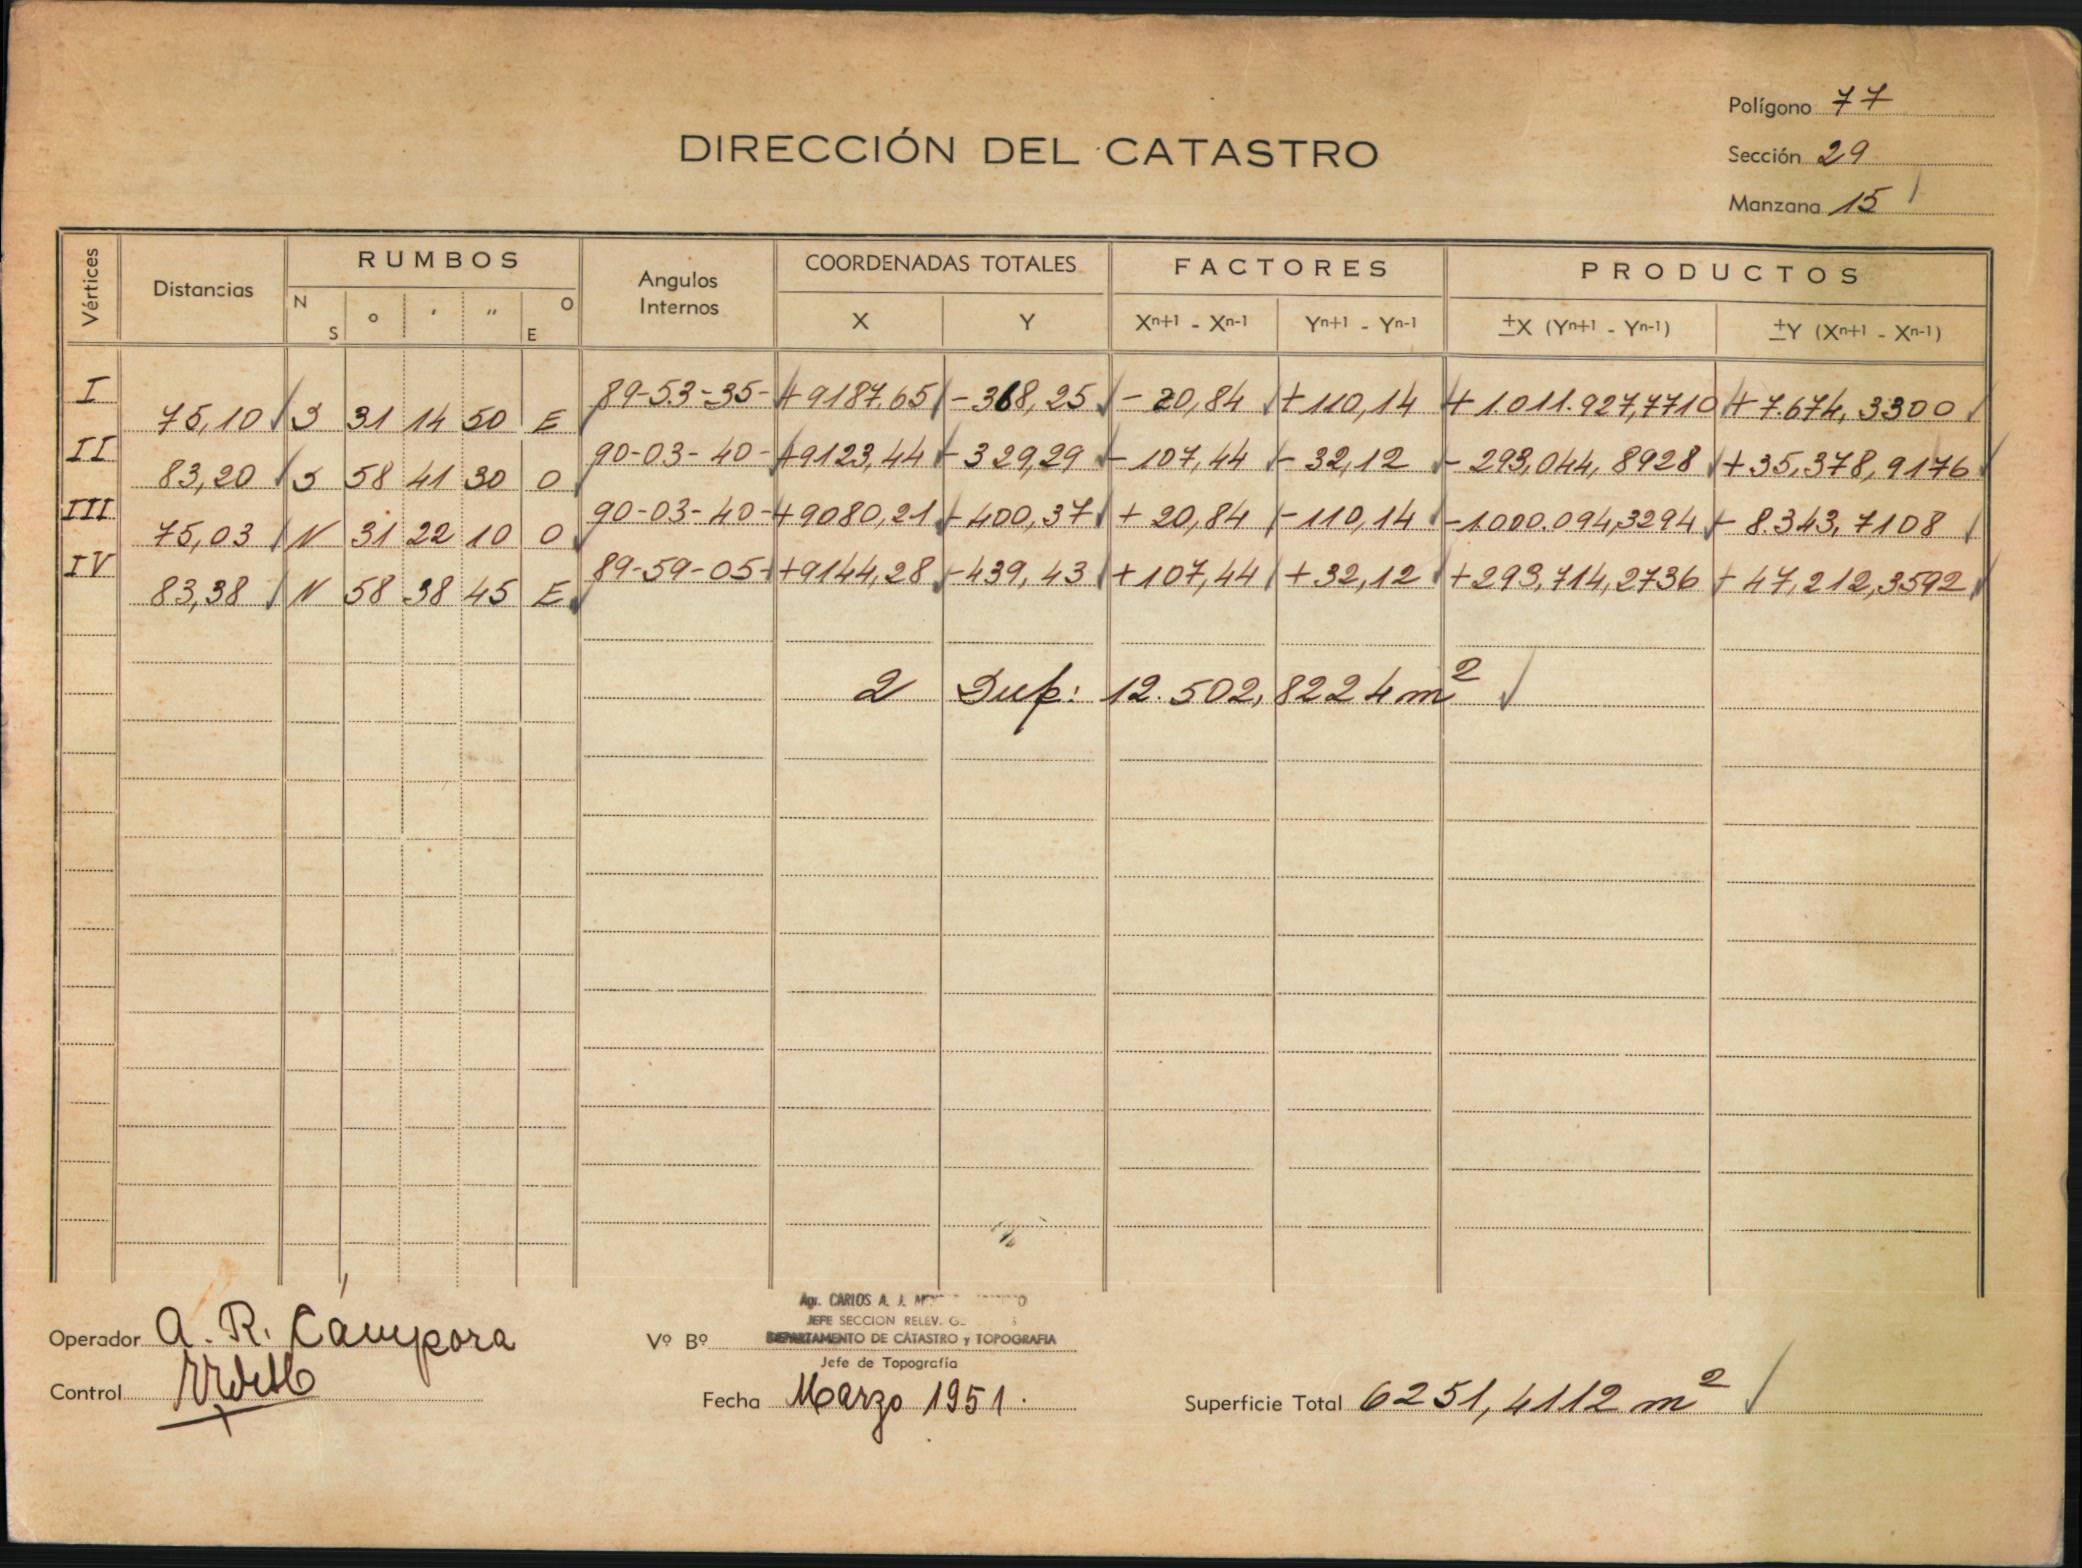 Polígono 77
DIRECCIÓN DEL CATASTRO
Sección 29
Manzana 15
Vértices Distancias RUMBOS Angulos Internos COORDENADAS TOTALES FACTORES PRODUCTOS
N S ° ' " O E X Y Xn+1 - Xn-1 Yn+1 - Yn-1 ±X (Yn+1 - Yn-1) ±Y (Xn+1 - Xn-1)
I 89-53-35- +9187,65 -368,25 -20,84 +110,14 +1.011.927,7710 +7.674,3300
75,10 S 31 14 50 E
II 90-03-40- +9123,44 -329,29 -107,44 -32,12 -293,044,8928 +35,378,9176
83,20 S 58 41 30 O
III 90-03-40- +9080,21 -400,37 +20,84 -110,14 -1000.094,3294 -8.343,7108
75,03 N 31 22 10 O
IV 89-59-05- +9144,28 -439,43 +107,44 +32,12 +293,714,2736 -47,212,3592
83,38 N 58 38 45 E
2 Sup: 12.502,8224 m²
Agr. CARLOS A. J.
JEFE SECCION RELEV.
Operador A. R. Cámpora Vº Bº DEPARTAMENTO DE CATASTRO y TOPOGRAFIA
Jefe de Topografía
Control
Fecha Marzo 1951. Superficie Total 6251,4112 m²